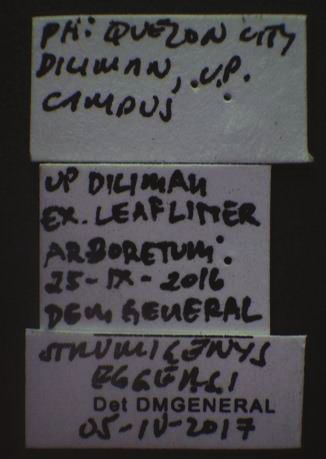 PH: QUEZON CITY
DILIMAN, U.P.
CAMPUS
UP DILIMAN
EX. LEAFLITTER
ARBORETUM.
25-IX-2016
DEM GENERAL
STRUMIGENYS
EGGERSI
Det DMGENERAL
05-IV-2017